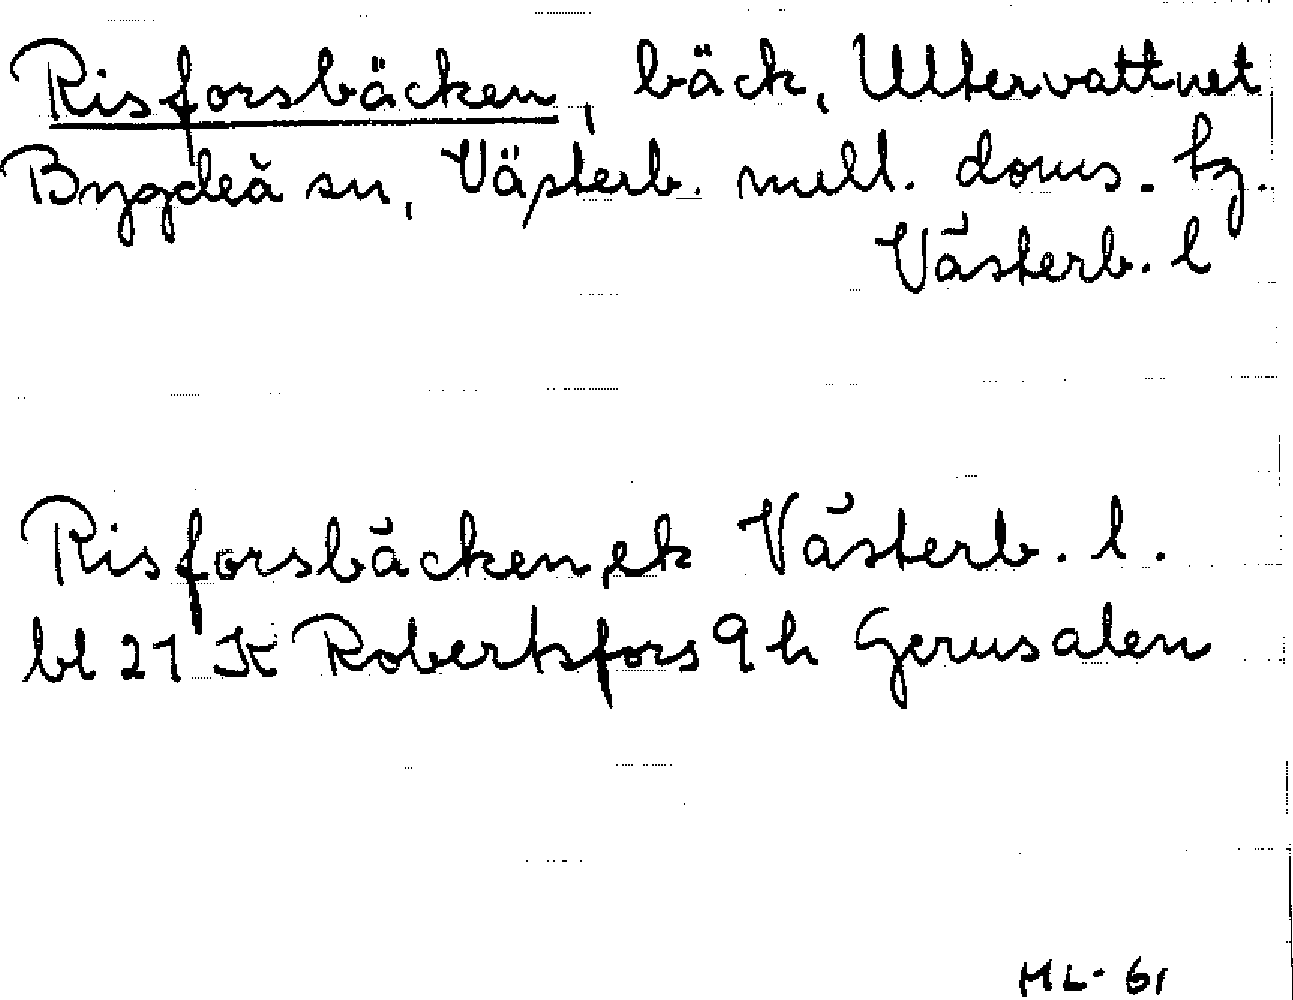 Risforsbäcken, bäck, Ultervattnet
Bygdeå sn, Västerb. mell. doms. tg.
Västerb. l
Risforsbäcken, ek Västerb. l.
bl 21 K Robertsfors 9 h Gerusalen
HL-61